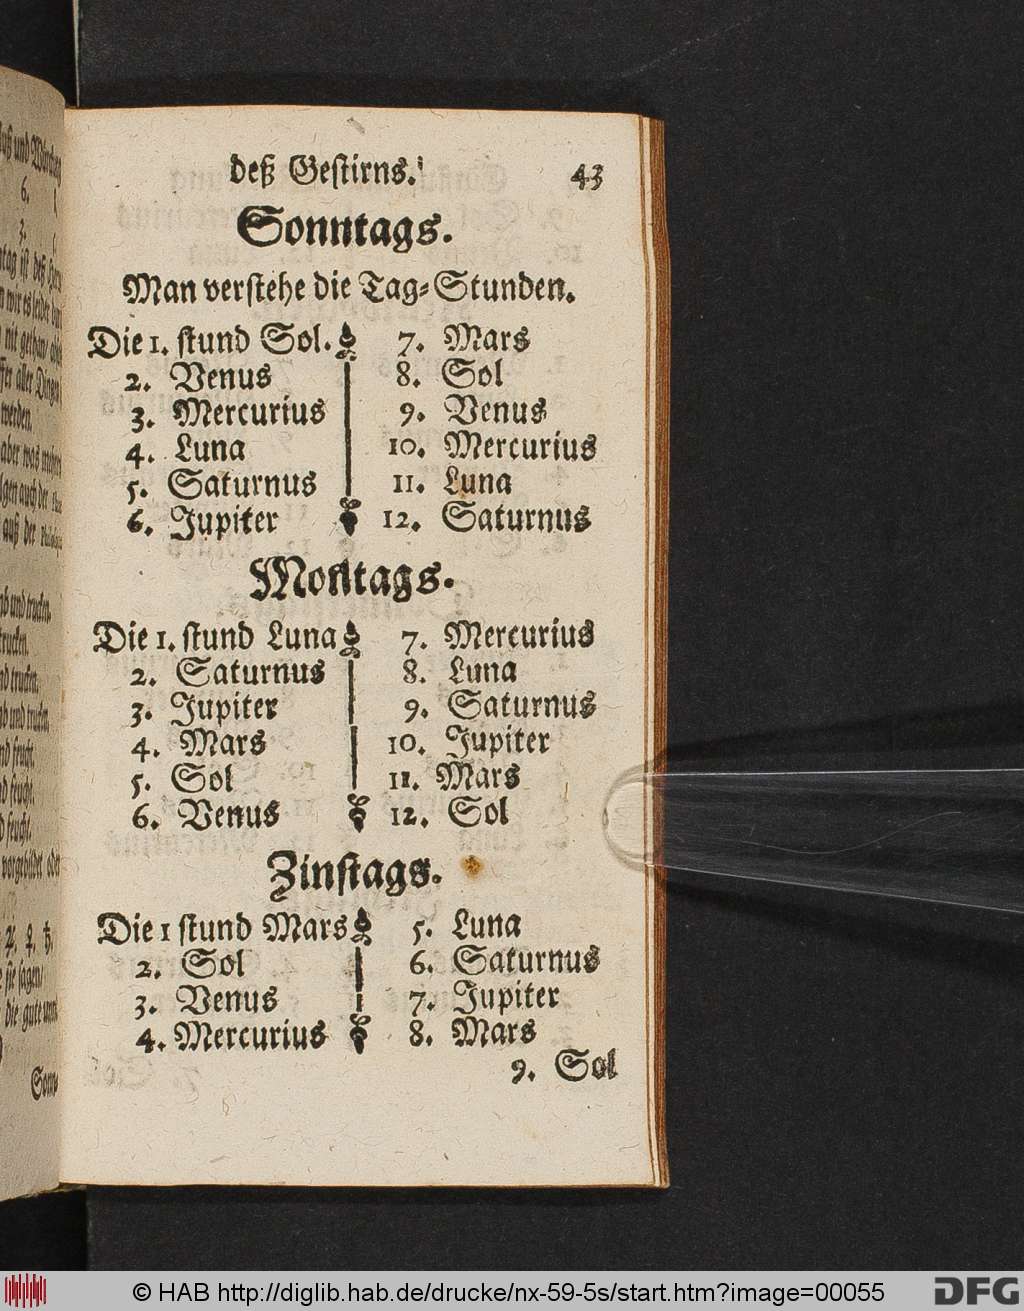 deß Gestirns.
43
Sonntags.
Man verstehe die Tag-Stunden.
Die 1. stund Sol.
2. Venus
3. Mercurius
4. Luna
5. Saturnus
6. Jupiter
7. Mars
8. Sol
9. Venus
10. Mercurius
11. Luna
12. Saturnus
Montags.
Die 1. stund Luna
2. Saturnus
3. Jupiter
4. Mars
5. Sol
6. Venus
7. Mercurius
8. Luna
9. Saturnus
10. Jupiter
11. Mars
12. Sol
Zinstags.
Die 1 stund Mars
2. Sol
3. Venus
4. Mercurius
5. Luna
6. Saturnus
7. Jupiter
8. Mars
9. Sol
© HAB http://diglib.hab.de/drucke/nx-59-5s/start.htm?image=00055
DFG